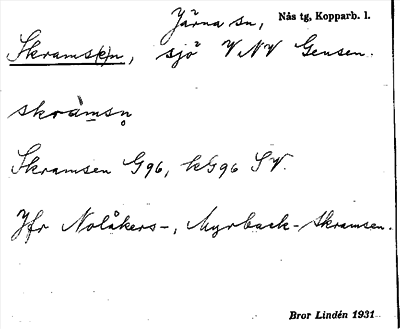 Järna sn, Nås tg, Kopparb. l.
Skrams(e)n, sjö V.NV Gensen.
skràmsn̥
Skramsen G96, kG96 SV.
Jfr Nolåkers-, Myrback-skramsen.
Bror Lindén 1931